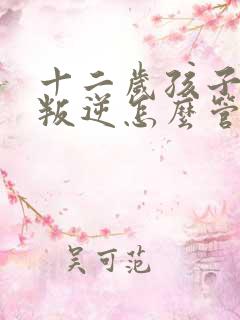 十二歲孩子
叛逆怎麼管
吴可范